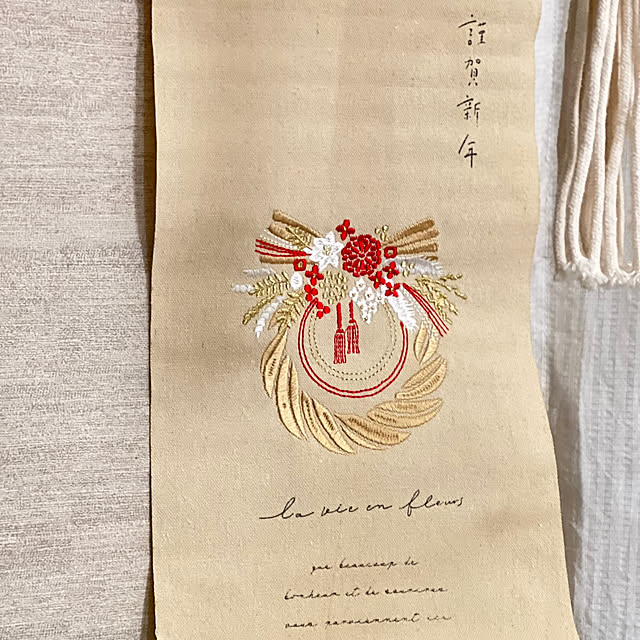 謹賀新年
la vie en fleurs
que beaucoup de
bonheur et de sourires
vous parviennent ici